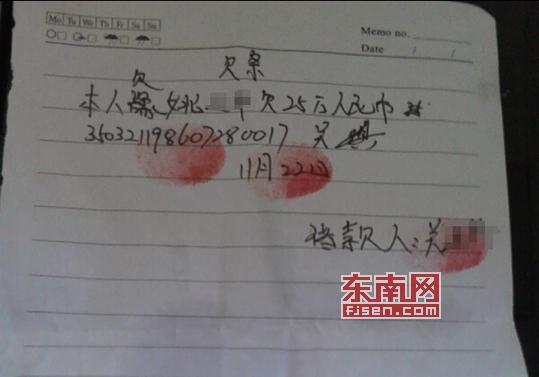 Mo Tu We Th Fr Sa Su
Memo no.
Date / /
欠条
欠
本人 欠25万人民币
350321198607280017 吴
11月22日
借款人：关
东南网
fjsen.com